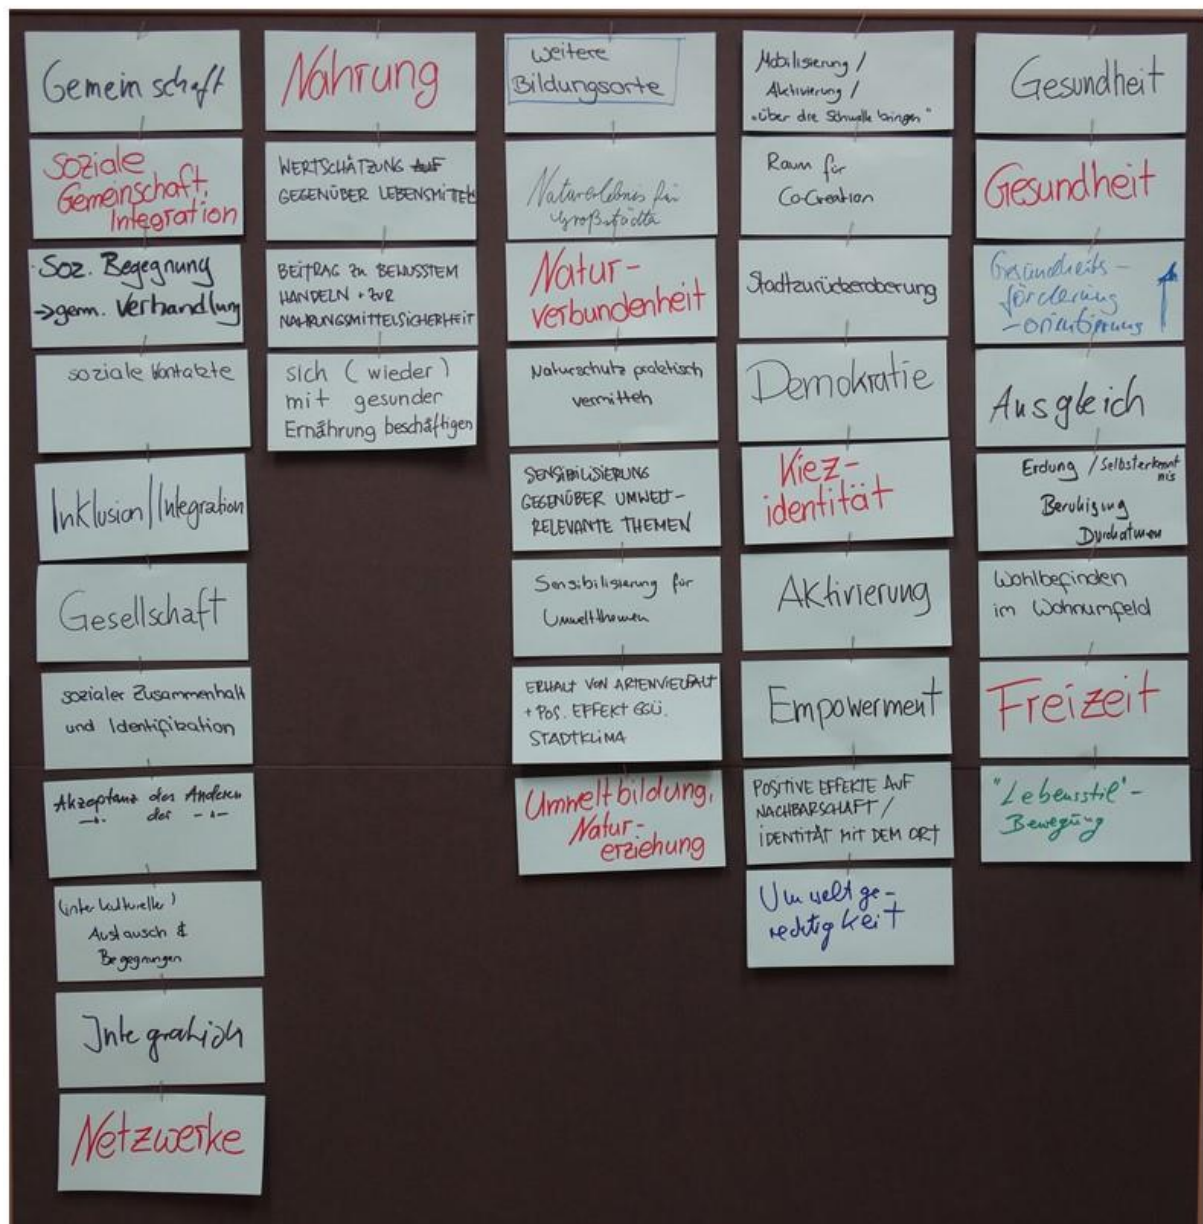 Gemeinschaft
Soziale
Gemeinschaft,
Integration
Soz. Begegnung
→gem. Verhandlung
soziale Kontakte
Inklusion/Integration
Gesellschaft
sozialer Zusammenhalt
und Identifikation
Akzeptanz des Anderen
der
(interkultureller)
Austausch &
Begegnungen
Integration
Netzwerke
Nahrung
WERTSCHÄTZUNG AUF
GEGENÜBER LEBENSMITTELN
BEITRAG ZU BEWUSSTEM
HANDELN + ZUR
NAHRUNGSMITTELSICHERHEIT
sich (wieder)
mit gesunder
Ernährung beschäftigen
weitere
Bildungsorte
Naturerlebnis für
Großstädter
Natur-
verbundenheit
Naturschutz praktisch
vermitteln
SENSIBILISIERUNG
GEGENÜBER UMWELT-
RELEVANTE THEMEN
Sensibilisierung für
Umweltthemen
ERHALT VON ARTENVIELFALT
+ POS. EFFEKT GGÜ.
STADTKLIMA
Umweltbildung,
Natur-
erziehung
Mobilisierung /
Aktivierung /
"über die Schwelle bringen"
Raum für
Co-Creation
Stadtzurückeroberung
Demokratie
Kiez-
identität
Aktivierung
Empowerment
POSITIVE EFFEKTE AUF
NACHBARSCHAFT /
IDENTITÄT MIT DEM ORT
Umweltge-
rechtigkeit
Gesundheit
Gesundheit
Gesundheits-
förderung
-orientierung
Ausgleich
Erdung / Selbsterkennt
nis
Beruhigung
Durchatmen
Wohlbefinden
im Wohnumfeld
Freizeit
"Lebensstil"-
Bewegung